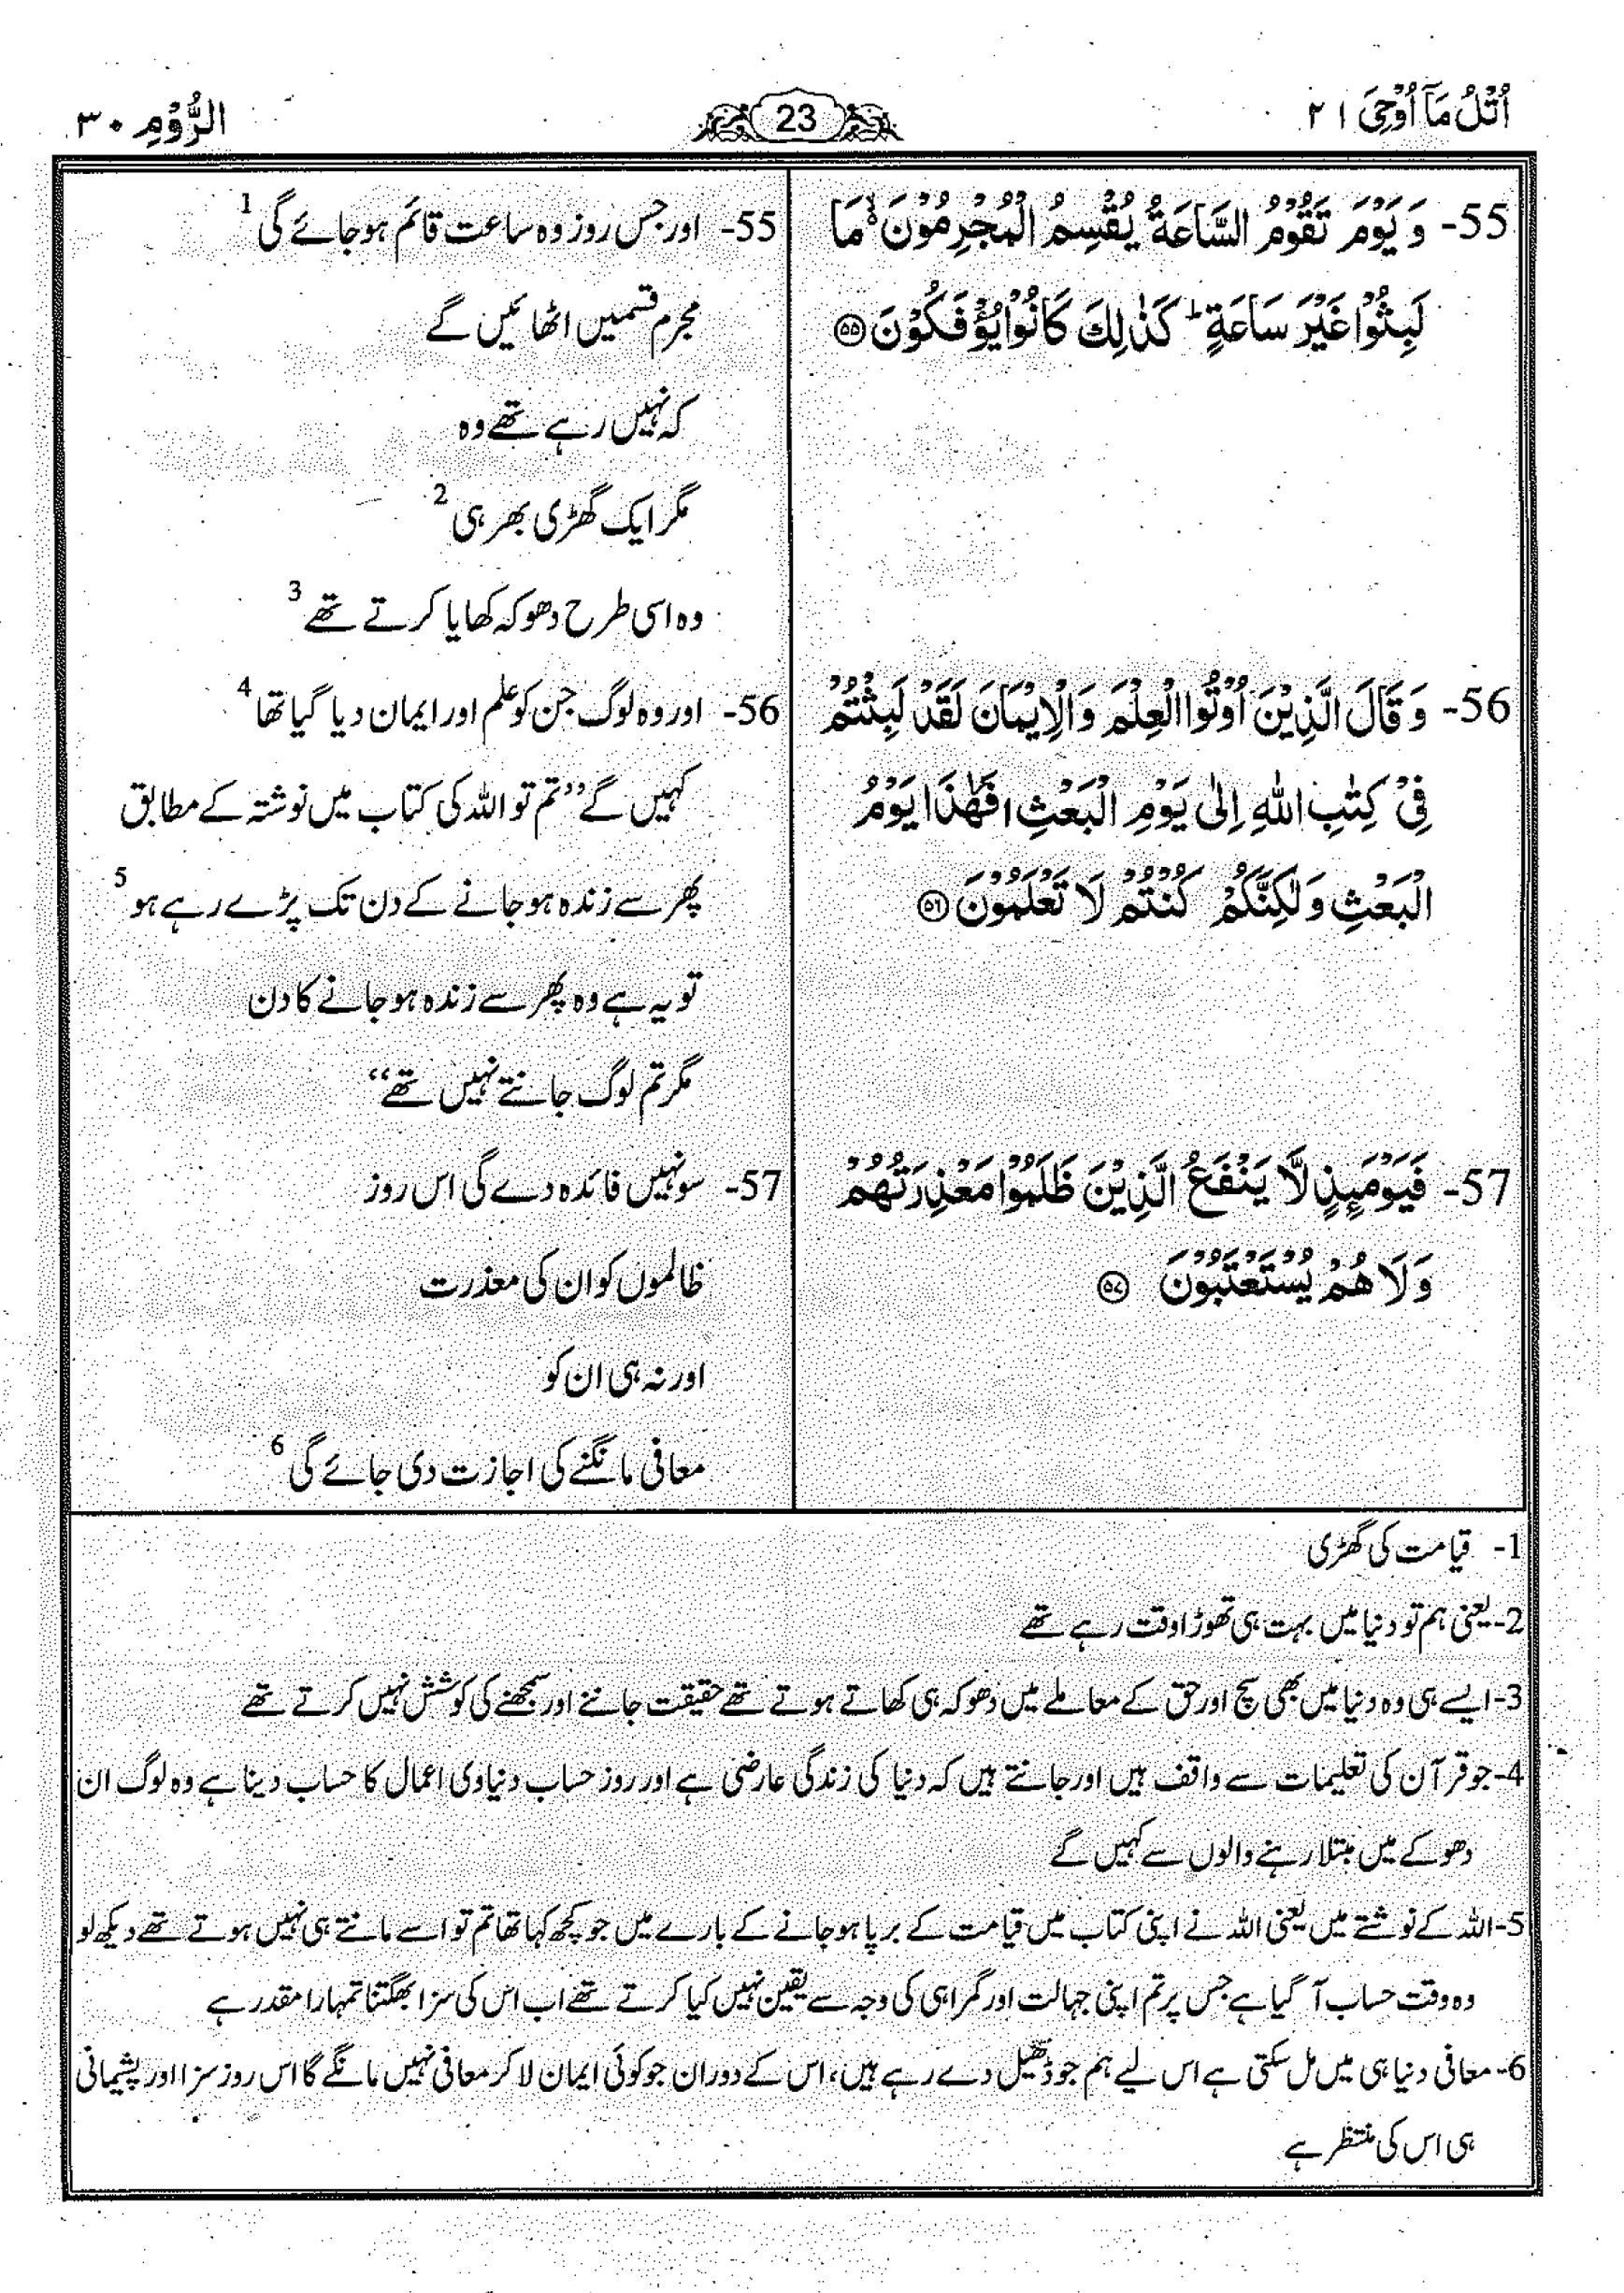 اُتْلُ مَاۤ اُوْحِیَ ۲۱
23
الرُّوْمِ ۳۰
55- وَ یَوْمَ تَقُوْمُ السَّاعَةُ یُقْسِمُ الْمُجْرِمُوْنَ ۙ۬ مَا
لَبِثُوْا غَیْرَ سَاعَةٍ ؕ كَذٰلِكَ كَانُوْا یُؤْفَكُوْنَ ۝۵۵
55- اور جس روز وہ ساعت قائم ہوجائے گی 1
مجرم قسمیں اٹھائیں گے
کہ نہیں رہے تھے وہ
مگر ایک گھڑی بھر ہی 2
وہ اسی طرح دھوکہ کھایا کرتے تھے 3
56- وَ قَالَ الَّذِیْنَ اُوْتُوا الْعِلْمَ وَ الْاِیْمَانَ لَقَدْ لَبِثْتُمْ
فِیْ كِتٰبِ اللّٰهِ اِلٰی یَوْمِ الْبَعْثِ ؗ فَهٰذَا یَوْمُ
الْبَعْثِ وَ لٰكِنَّكُمْ كُنْتُمْ لَا تَعْلَمُوْنَ ۝۵۶
56- اور وہ لوگ جن کو علم اور ایمان دیا گیا تھا 4
کہیں گے ’’تم تو اللہ کی کتاب میں نوشتہ کے مطابق
پھر سے زندہ ہوجانے کے دن تک پڑے رہے ہو 5
تو یہ ہے وہ پھر سے زندہ ہوجانے کا دن
مگر تم لوگ جانتے نہیں تھے‘‘
57- فَیَوْمَىِٕذٍ لَّا یَنْفَعُ الَّذِیْنَ ظَلَمُوْا مَعْذِرَتُهُمْ
وَ لَا هُمْ یُسْتَعْتَبُوْنَ ۝۵۷
57- سو نہیں فائدہ دے گی اس روز
ظالموں کو ان کی معذرت
اور نہ ہی ان کو
معافی مانگنے کی اجازت دی جائے گی 6
1- قیامت کی گھڑی
2- یعنی ہم تو دنیا میں بہت ہی تھوڑا وقت رہے تھے
3- ایسے ہی وہ دنیا میں بھی سچ اور حق کے معاملے میں دھوکہ ہی کھاتے ہوتے تھے حقیقت جاننے اور سمجھنے کی کوشش نہیں کرتے تھے
4- جو قرآن کی تعلیمات سے واقف ہیں اور جانتے ہیں کہ دنیا کی زندگی عارضی ہے اور روز حساب دنیاوی اعمال کا حساب دینا ہے وہ لوگ ان
دھوکے میں مبتلا رہنے والوں سے کہیں گے
5- اللہ کے نوشتے میں یعنی اللہ نے اپنی کتاب میں قیامت کے برپا ہوجانے کے بارے میں جو کچھ کہا تھا تم تو اسے مانتے ہی نہیں ہوتے تھے دیکھ لو
وہ وقت حساب آ گیا ہے جس پر تم اپنی جہالت اور گمراہی کی وجہ سے یقین نہیں کیا کرتے تھے اب اس کی سزا بھگتنا تمہارا مقدر ہے
6- معافی دنیا ہی میں مل سکتی ہے اس لیے ہم جو ڈھیل دے رہے ہیں، اس کے دوران جو کوئی ایمان لا کر معافی نہیں مانگے گا اس روز سزا اور پشیمانی
ہی اس کی منتظر ہے